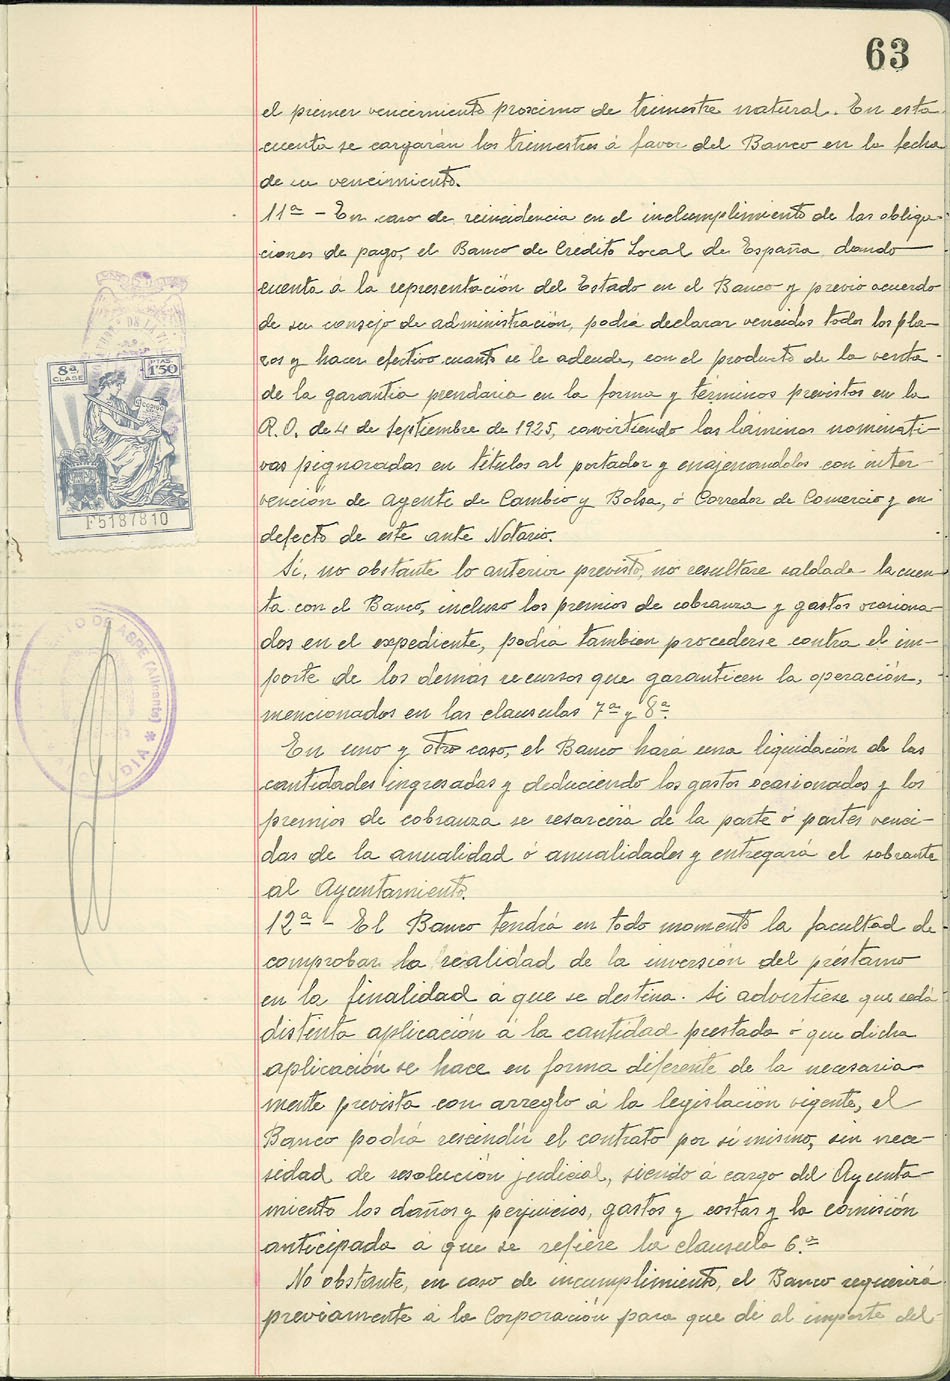 63
el primer vencimiento proximo de trimestre natural. En esta
cuenta se cargarán los trimestres á favor del Banco en la fecha
de su vencimiento.
11ª - En caso de reincidencia en el inclumplimiento de las obliga-
ciones de pago, el Banco de Crédito Local de España, dando
cuenta á la representación del Estado en el Banco y previo acuerdo
de su consejo de administración, podrá declarar vencidos todos los pla-
zos y hacer efectivo cuanto se le adeude, con el producto de la venta
de la garantia prendaria en la forma y términos previstos en la
R.O. de 4 de Septiembre de 1925, convirtiendo las láminas nominati-
vas pignoradas en titulos al portador y enajenandolos con inter-
vención de Agente de Cambio y Bolsa, ó Corredor de Comercio y en
defecto de este ante Notario.
Si, no obstante lo anterior previsto, no resultare saldada la cuen-
ta con el Banco, incluso los premios de cobranza y gastos ocasiona-
dos en el expediente, podrá tambien procederse contra el im-
porte de los demás recursos que garanticen la operación,
mencionados en las clausulas 7ª y 8ª.
En uno y otro caso, el Banco hará una liquidación de las
cantidades ingresadas y deduciendo los gastos ocasionados y los
premios de cobranza se resarcirá de la parte ó partes venci-
das de la anualidad ó anualidades y entregará el sobrante
al Ayuntamiento.
12ª - El Banco tendrá en todo momento la facultad de
comprobar la realidad de la inversión del préstamo
en la finalidad á que se destina. Si advirtiese que se dá
distinta aplicación á la cantidad prestada ó que dicha
aplicación se hace en forma diferente de la necesaria-
mente prevista con arreglo á la legislación vigente, el
Banco podrá rescindir el contrato por si mismo, sin nece-
sidad de resolución judicial, siendo á cargo del Ayunta-
miento los daños y perjuicios, gastos y costas y la comisión
anticipada á que se refiere la clausula 6.ª
No obstante, en caso de incumplimiento, el Banco requerirá
previamente á la Corporación para que dé al importe del
8ª CLASE
PTAS 1'50
F5187810
DE AGRE (Alicante)